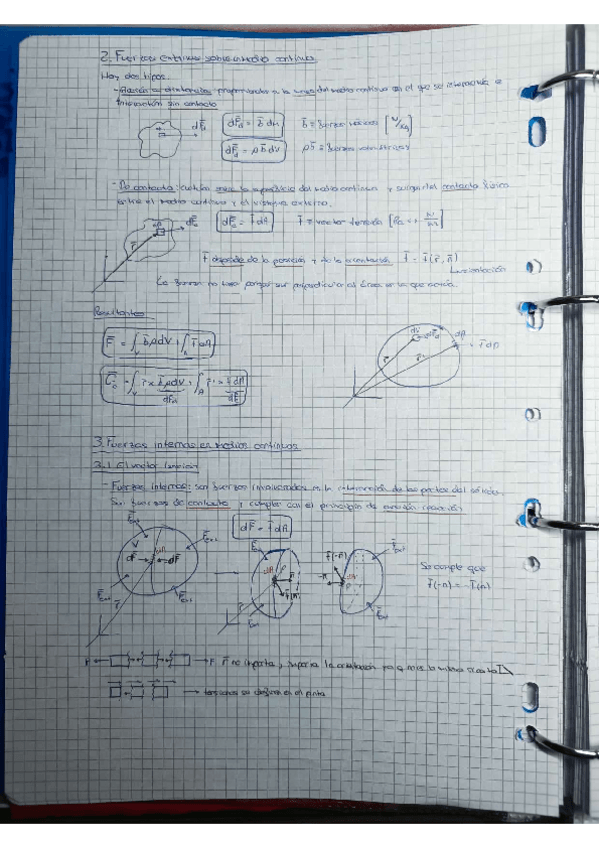 2. Fuerzas externas sobre un medio continuo
Hay dos tipos.
- Acción a distancia: proporcionales a la masa del medio continuo en el que se
interacción sin contacto
dF̄d
dF̄d = b̄ dm
b̄ = fuerzas másicas [N/kg]
dF̄d = ρ b̄ dV
ρb̄ = fuerzas volumétricas
- De contacto: actúan sobre la superficie del medio continuo y surgen del contacto físico
entre el medio continuo y el sistema externo.
dA
dF̄c
dF̄c = t̄ dA
t̄ = vector tensión
r̄
t̄ depende de la posición y de la orientación t̄ = t̄(r̄, n̄)
orientación
La fuerza no tiene porque ser perpendicular al área en la que actúa.
Resultantes
F̄ = ∫V b̄ρdV + ∫A t̄ dA
dV
dF̄d
dA
t̄ dA
r̄
r̄'
3. Fuerzas internas en medios continuos
3.1. El vector tensión
- Fuerzas internas: son fuerzas involucradas en la interacción de las partes del sólido.
Son fuerzas de contacto y cumplen con el principio de acción reacción
dF̄ = t̄ dA
F̄ext
V
dA
dF̄
dF̄
F̄ext
F̄ext
r̄
F̄ext
dA
P
n̄
t̄(n̄)
r̄
F̄ext
t̄(-n̄)
-n̄
dA
P
F̄ext
F̄ext
Se cumple que
t̄(-n̄) = -t̄(n̄)
F
F
r̄ no importa, importa la orientación
→ tensiones se definen en el punto